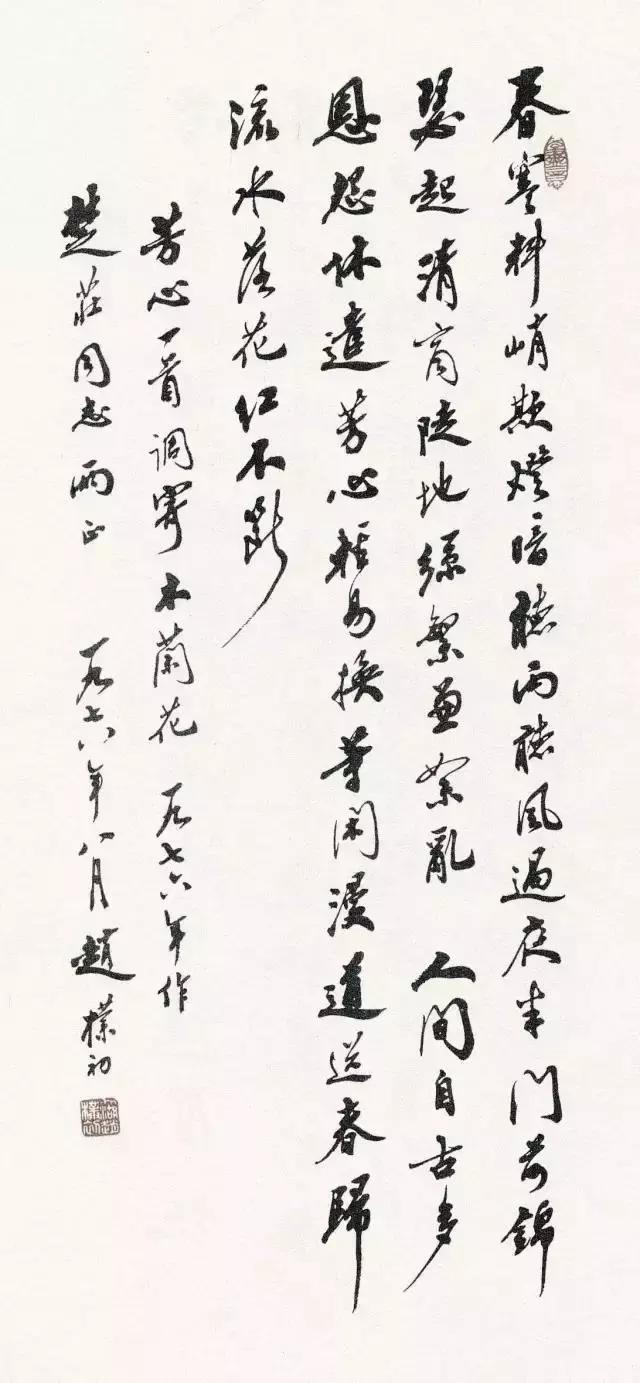 春寒料峭欺燈暗聽雨聽風過夜半門前錦
瑟起清商陡地絲繁兼絮亂 人間自古多
恩怨休遣芳心輕易換等閑漫道送春歸
流水落花紅不斷
芳心一首調寄木蘭花 一九七六年作
楚莊同志兩正 一九七八年八月趙樸初